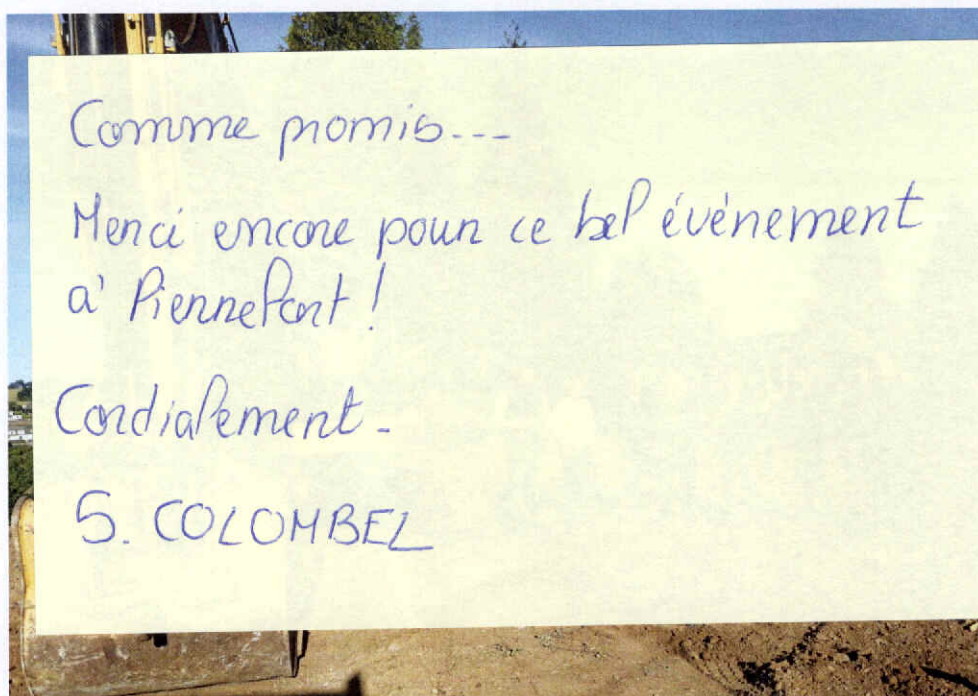 Comme promis---
Merci encore pour ce bel événement
à Pierrefont !
Cordialement -
S. COLOMBEL